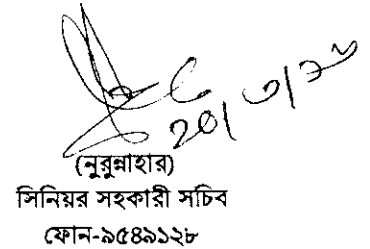 (নুরুন্নাহার)
সিনিয়র সহকারী সচিব
ফোন-৯৫৪৯১২৮